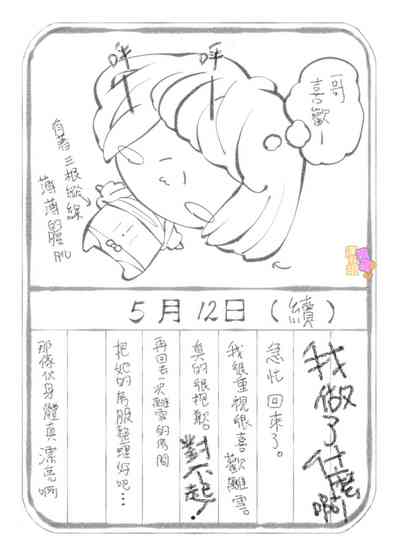 哥
喜歡ー
呼ー
呼ー
有著三根縱線
薄薄的體
5月12日(續)
我做了什麼啊!
急忙回來了。
我很重視很喜歡離雪。
真的很抱歉。對不起!
再回去一次離雪的房間
把她的衣服整理好吧…
那傢伙身體真漂亮啊